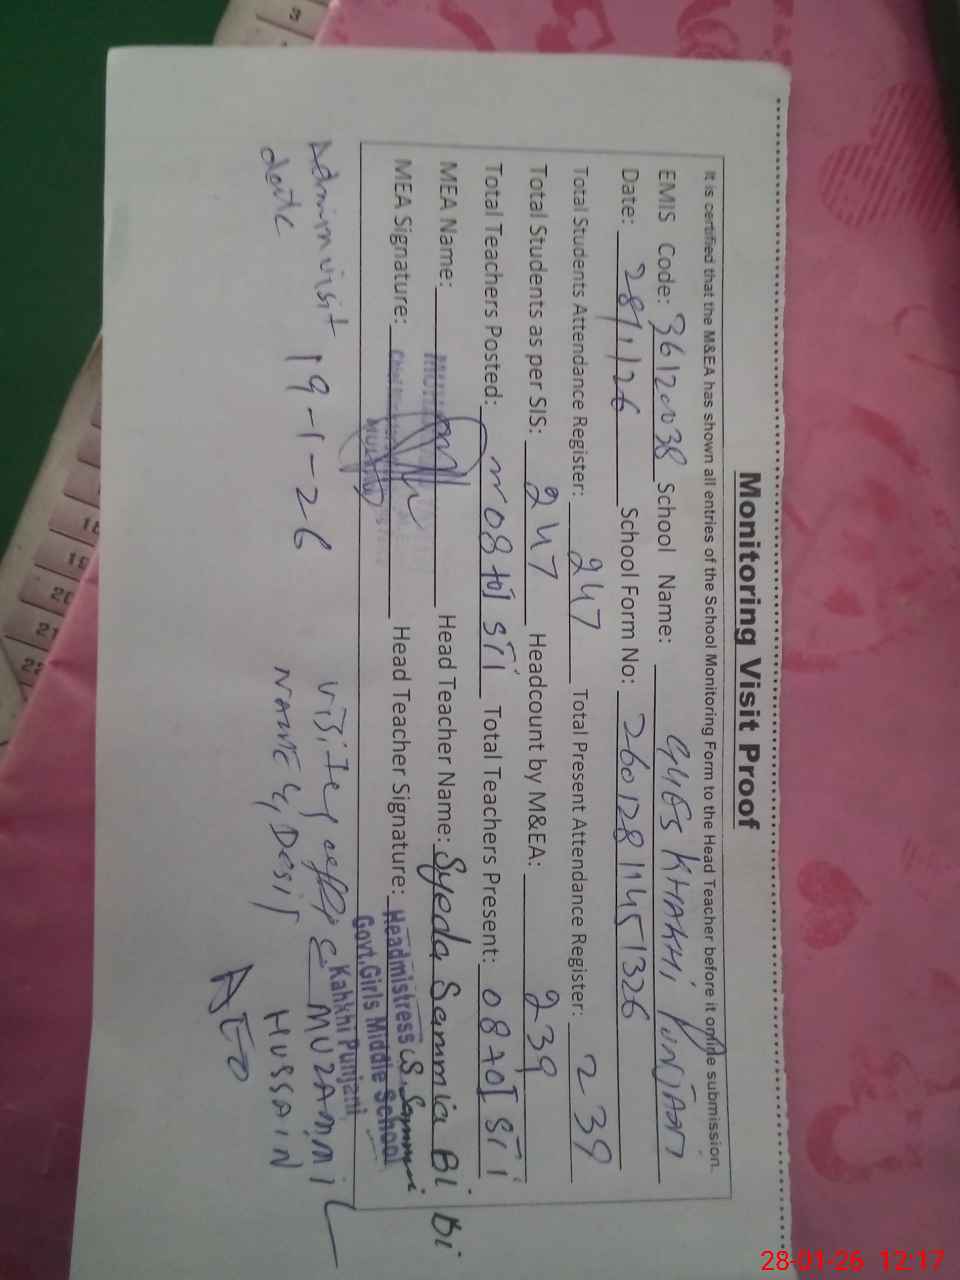 Monitoring Visit Proof
It is certified that the M&EA has shown all entries of the School Monitoring Form to the Head Teacher before it online submission.
EMIS Code: 36120038 School Name: GGES KHAKHI PUNJANI
Date: 28/1/26 School Form No: 2601281145 1326
Total Students Attendance Register: 247 Total Present Attendance Register: 239
Total Students as per SIS: 247 Headcount by M&EA: 239
Total Teachers Posted: 08+01 STI Total Teachers Present: 08+01 STI
MEA Name: Head Teacher Name: Syeda Sammia Bi Bi
MEA Signature: Head Teacher Signature: S. Sammia
Headmistress
Govt.Girls Middle School
Kahkhi Punjani
Admin visit 19-1-26 MUZAMMIL
date NAME & Desig HUSSAIN
AEO
28-01-26 12:17
18
19
20
21
22